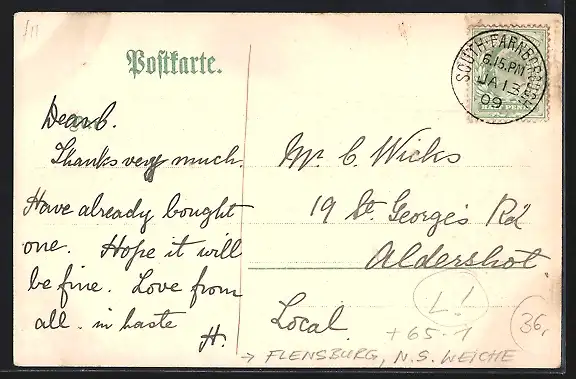 Postkarte.
SOUTH-FARNBOROUGH
6.15.PM
JA 13
09
Dear C.
Thanks very much.
Have already bought
one. Hope it will
be fine. Love from
all. in haste
H.
Mr C. Wicks
19 St. George's Rd
Aldershot.
Local
L!
+65-1
36,
→ FLENSBURG, N.S. WEICHE